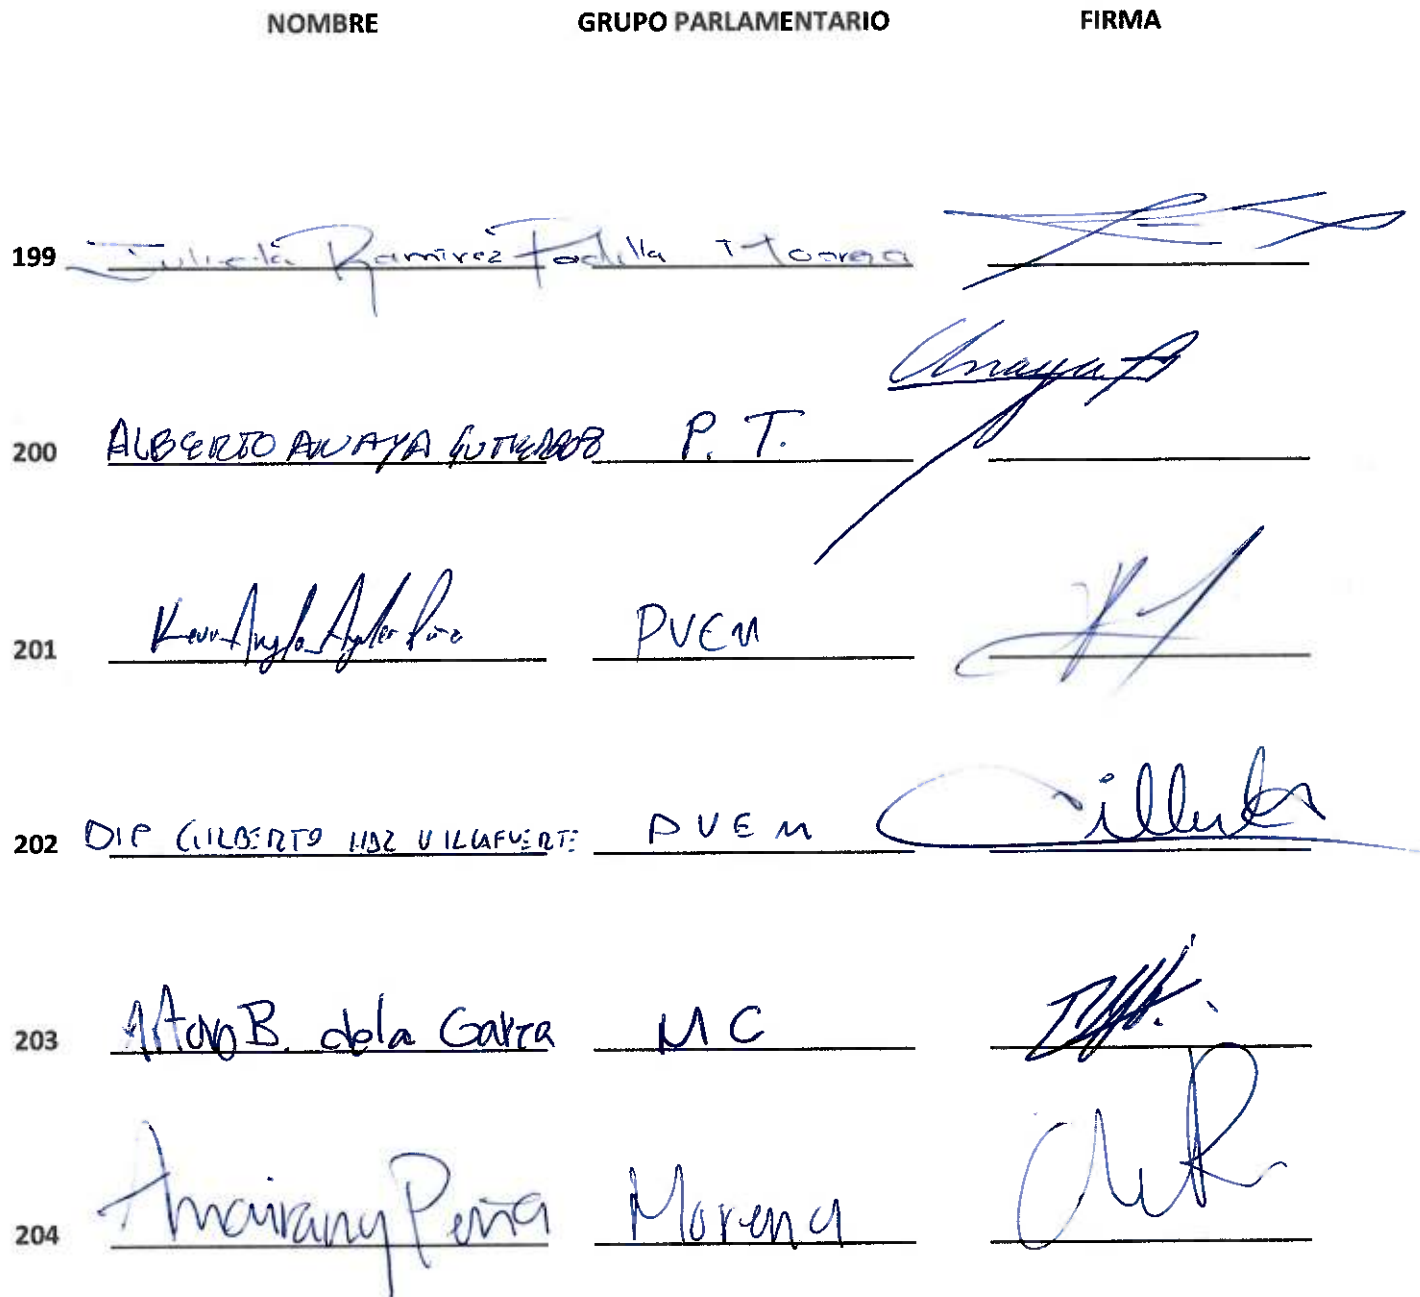 NOMBRE GRUPO PARLAMENTARIO FIRMA
199 Julieta Ramírez Padilla Morena
200 ALBERTO ANAYA GUTIERREZ P. T. Anaya
201 Kevin Angelo Aguilar Piña PVEM
202 DIP GILBERTO HDZ VILLAFUERTE PVEM
203 Arturo B. de la Garza MC
204 Amairany Peña Morena